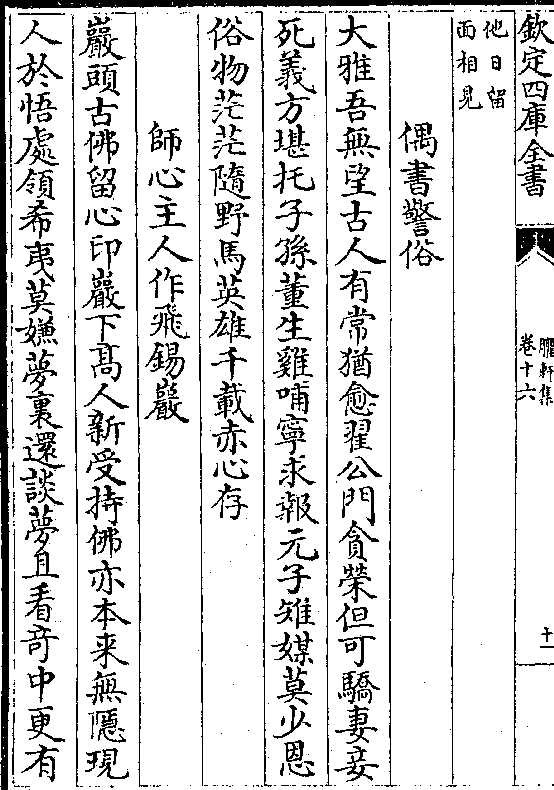 欽定四庫全書
臞軒集
卷十六
十一
他日留
面相見
偶書警俗
大雅吾無望古人有常猶愈翟公門貪榮但可驕妻妾
死義方堪托子孫董生雞哺寧求報元子雉媒莫少恩
俗物茫茫隨野馬英雄千載赤心存
師心主人作飛錫巖
巖頭古佛留心印巖下髙人新受持佛亦本来無隱現
人於悟處領希夷莫嫌夢裏還談夢且看竒中更有